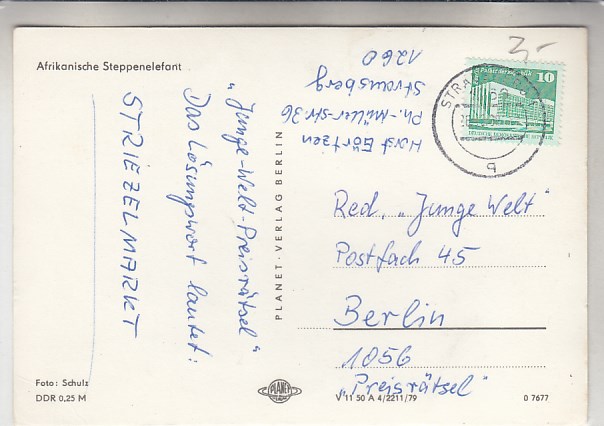 Afrikanische Steppenelefant
"Junge-Welt-Preisrätsel"
Das Lösungswort lautet:
STRIEZELMARKT
Horst Görtzen
Ph.-Müller-Str. 36
Strausberg
1260
PLANET-VERLAG BERLIN
3,-
10
STRAUSBERG
q
Red. „Junge Welt"
Postfach 45
Berlin
1056
„Preisrätsel"
Foto: Schulz
DDR 0,25 M
PLANET
V 11 50 A 4/2211/79
0 7677